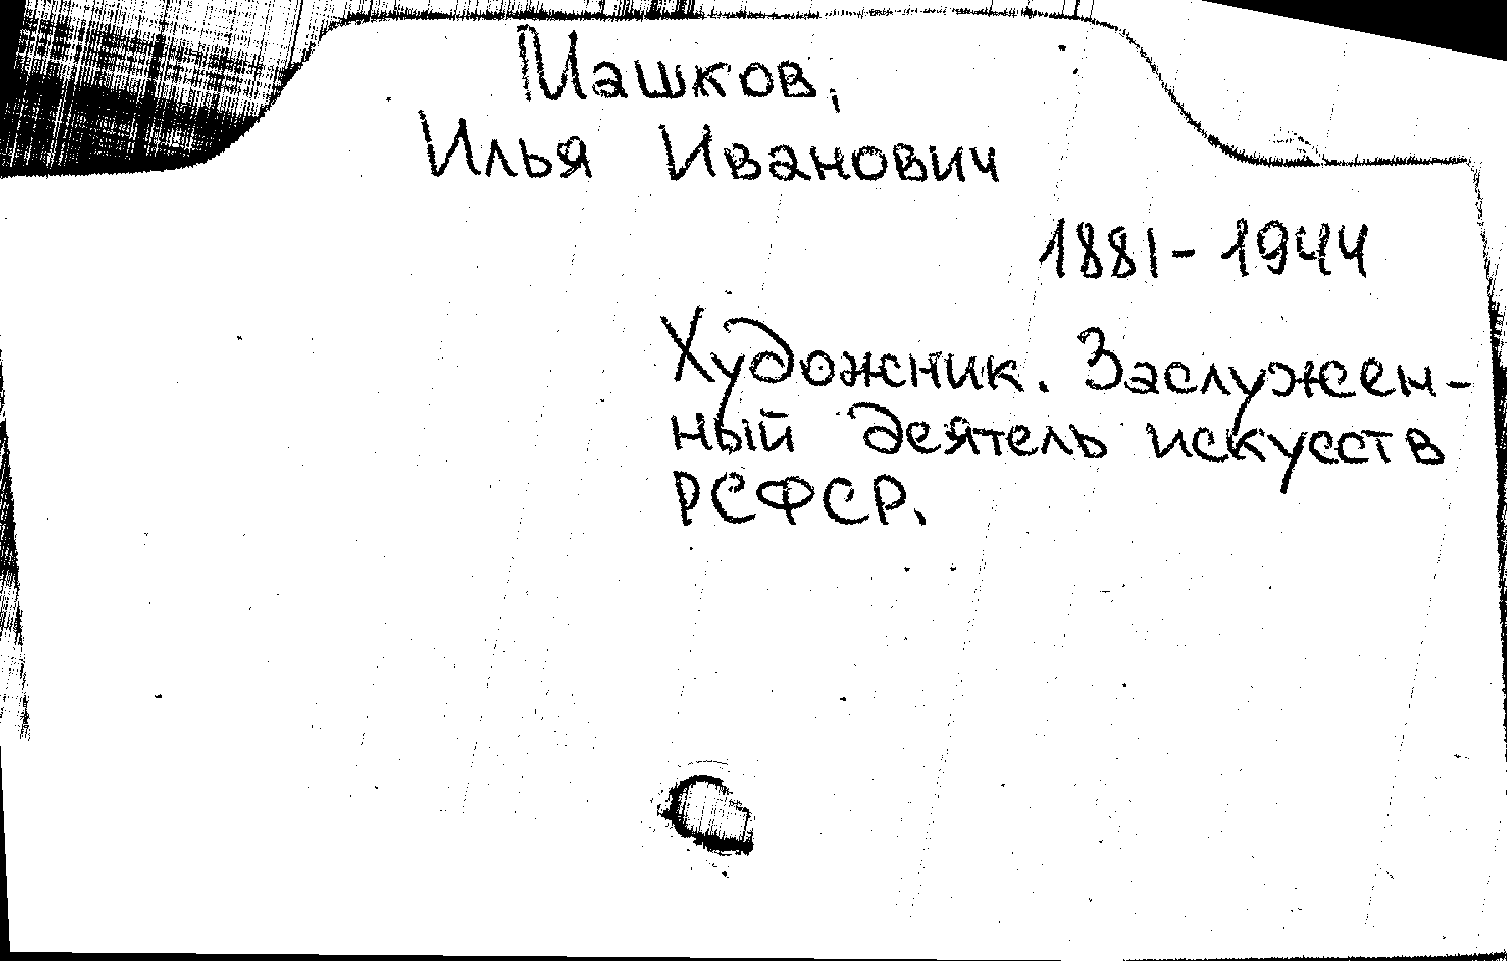 Машков,
Илья Иванович
1881-1944
Художник. Заслужен-
ный деятель искусств
РСФСР.